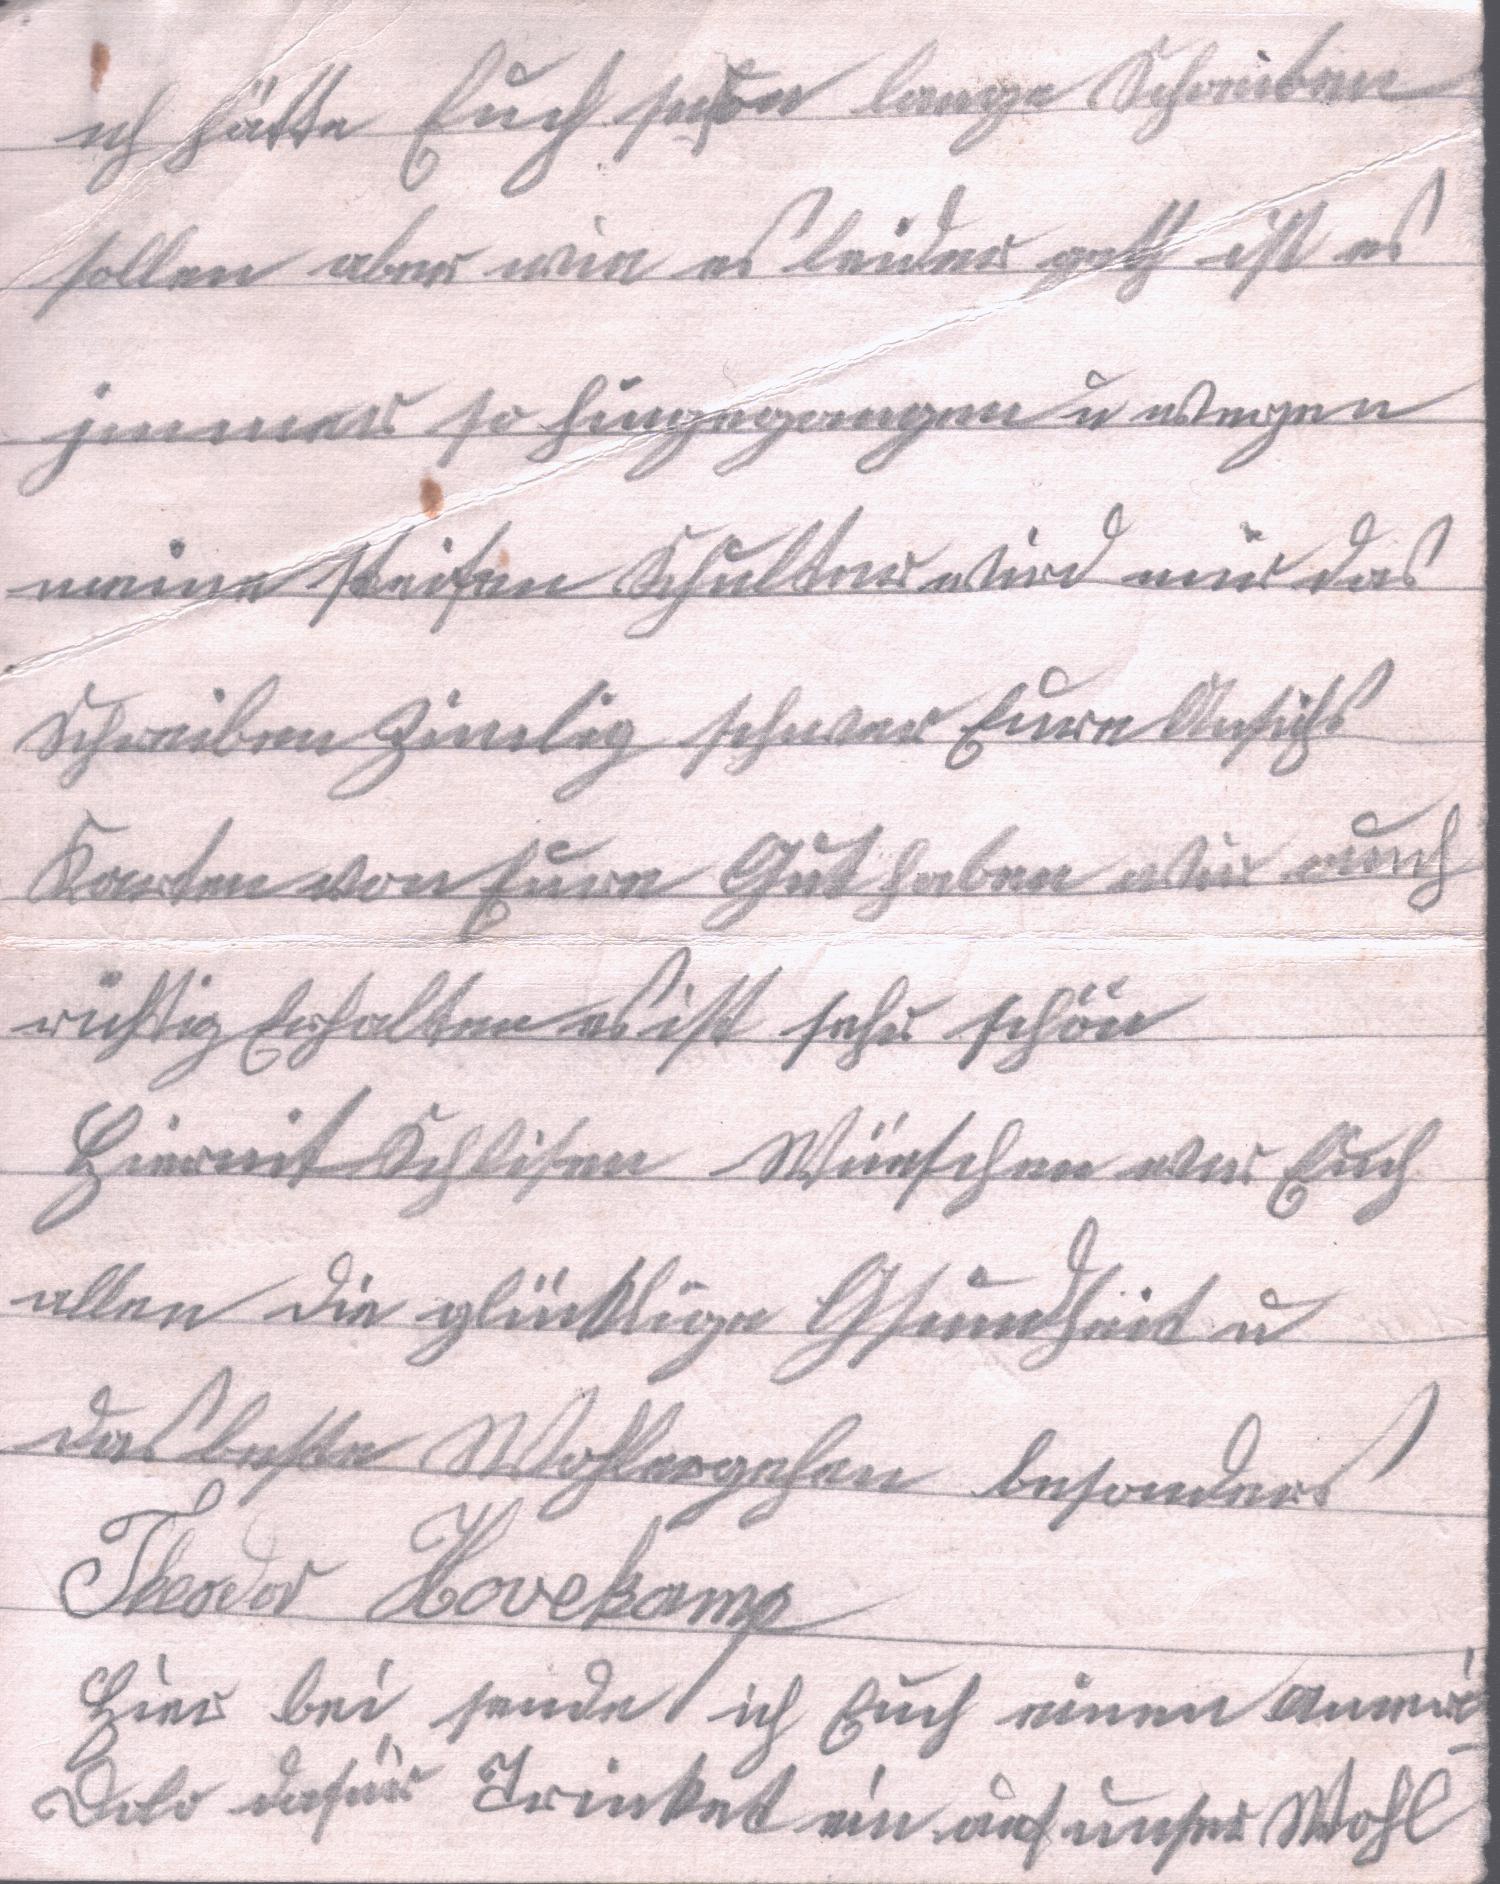 ich hätte Euch schon lange Schreiben
sollen aber wie es leider geth ist es
jmmer so hingegangen u wegen
meine steifen Schulter wird mir das
Schreiben zimlig schwer Eure Ansichs
Karten von Eure Gut haben wir auch
richtig Erhalten es ist sehr schön
Hiermit Schlisen Wünschen wir Euch
allen die glücklige Gsundheit u
das beste Wohlergehen besonders
Theodor Hovekamp
Hier bei sende ich Euch einen
dafür Trinket ein auf unser Wohl